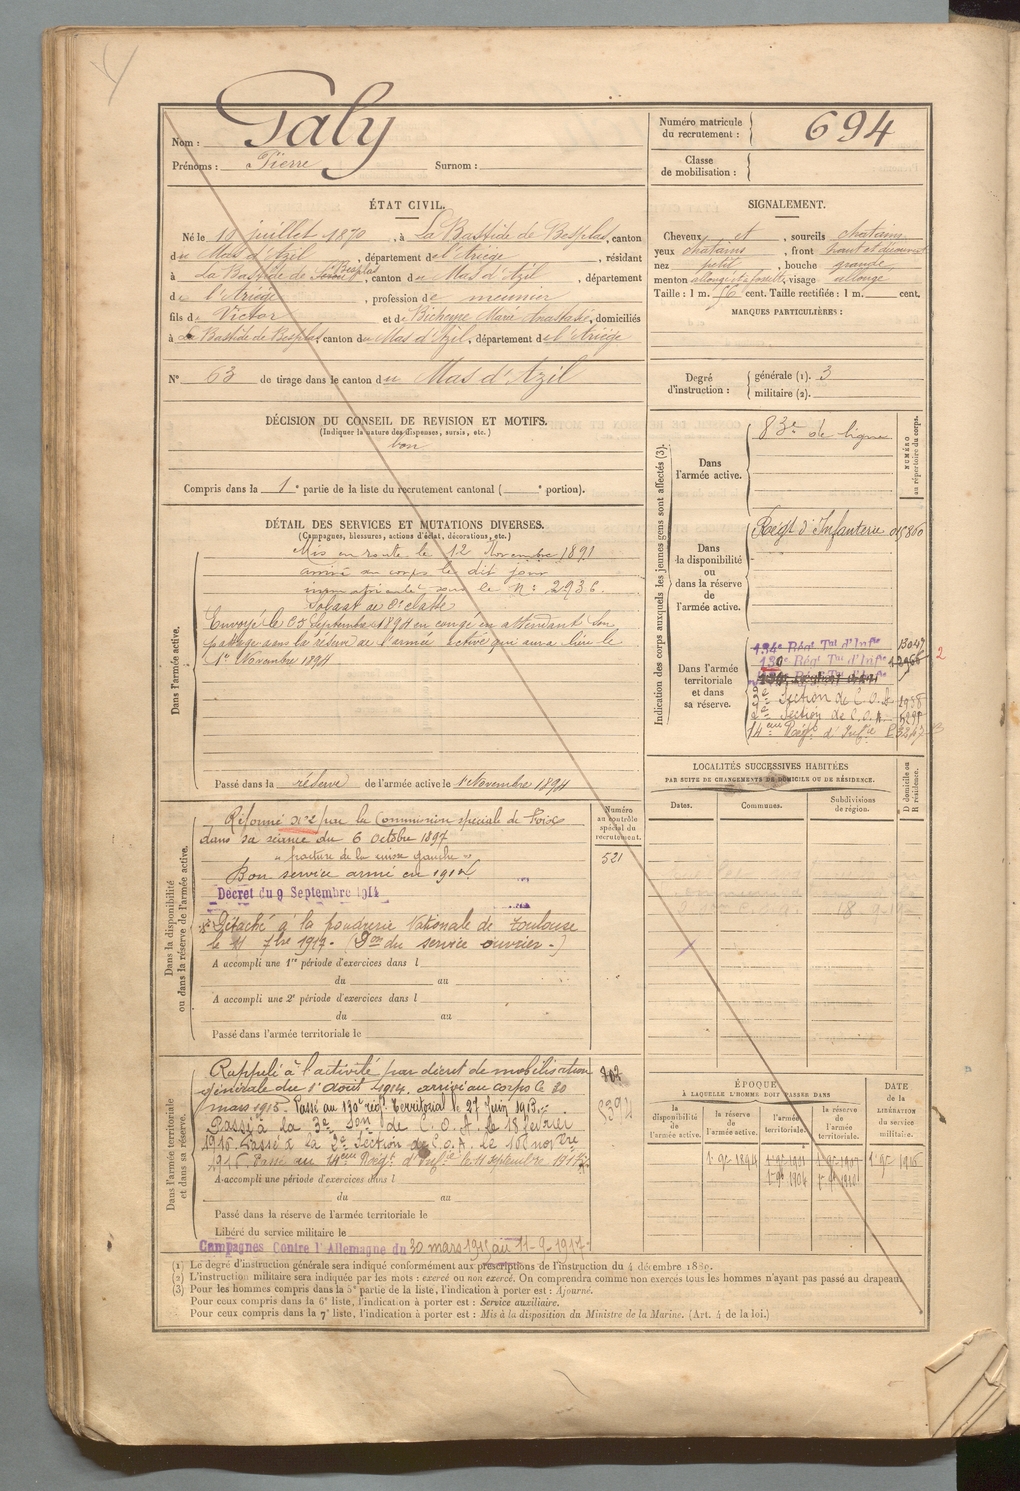 Nom : Galy
Prénoms : Pierre Surnom :
Numéro matricule du recrutement : 694
Classe de mobilisation :
ÉTAT CIVIL.
Né le 10 juillet 1870, à La Bastide de Besplas, canton
du Mas d'Azil, département de l'Ariège, résidant
à La Bastide de Besplas, canton du Mas d'Azil, département
de l'Ariège, profession de meunier
fils de Victor et de Bicheyre Marie Anastasie, domiciliés
à La Bastide de Besplas, canton du Mas d'Azil, département de l'Ariège
N° 63 de tirage dans le canton du Mas d'Azil
SIGNALEMENT.
Cheveux et, sourcils chatains
yeux chatains, front haut et découvert
nez petit, bouche grande
menton, visage allongé
Taille : 1 m. 56 cent. Taille rectifiée : 1 m. cent.
MARQUES PARTICULIÈRES :
Degré d'instruction : générale (1). 3
militaire (2).
DÉCISION DU CONSEIL DE REVISION ET MOTIFS.
(Indiquer la nature des dispenses, sursis, etc.)
bon
Compris dans la 1e partie de la liste du recrutement cantonal ( e portion).
DÉTAIL DES SERVICES ET MUTATIONS DIVERSES.
(Campagnes, blessures, actions d'éclat, décorations, etc.)
Dans l'armée active.
Mis en route le 12 Novembre 1891
arrivé au corps le dit jour
immatriculé sous le N: 2936.
Soldat de 2e classe
Envoyé le 25 Septembre 1894 en congé en attendant son
passage dans la réserve de l'armée active qui aura lieu le
1er Novembre 1894
Passé dans la réserve de l'armée active le 1er Novembre 1894
Indication des corps auxquels les jeunes gens sont affectés (3).
NUMÉRO au répertoire du corps.
Dans l'armée active.
83e de ligne
Dans la disponibilité ou dans la réserve de l'armée active.
Régt d'Infanterie 015860
Dans l'armée territoriale et dans sa réserve.
134e Régt Tal d'Infie
130e Régt Tal d'Infie
3e Section de C.O.A.
2e Section de C.O.A.
14eme Régt d'Infie
Dans la disponibilité ou dans la réserve de l'armée active.
Numéro au contrôle spécial du recrutement.
521
Réformé n°2 par la Commission spéciale de Foix
dans sa séance du 6 octobre 1897
"fracture de la cuisse gauche"
Bon service armé en 1914
Décret du 9 Septembre 1914
Détaché à la poudrerie Nationale de Toulouse
le 11 7bre 1917 - ( du service ouvrier - )
A accompli une 1re période d'exercices dans l
du au
A accompli une 2e période d'exercices dans l
du au
Passé dans l'armée territoriale le
LOCALITÉS SUCCESSIVES HABITÉES
PAR SUITE DE CHANGEMENTS DE DOMICILE OU DE RÉSIDENCE.
Dates. Communes. Subdivisions de région. D domicile ou R résidence.
Dans l'armée territoriale et dans sa réserve.
Rappelé à l'activité par décret de mobilisation
générale du 1er Août 1914. arrivé au corps le 30
mars 1915. Passé au 130e rég. Territorial le 27 Juin 1915.
Passé à la 3e Son de C.O.A. le 18 février
1916. Passé à la 2e Section de C.O.A. le
1916. Passé au 14eme Régt d'Infie le 11 septembre 1917
A accompli une période d'exercices dans l
du au
Passé dans la réserve de l'armée territoriale le
Libéré du service militaire le
Campagnes Contre l'Allemagne du 30 mars 1915 au 11-9-1917
ÉPOQUE
À LAQUELLE L'HOMME DOIT PASSER DANS
la disponibilité de l'armée active. la réserve de l'armée active. l'armée territoriale. la réserve de l'armée territoriale.
DATE DE LA LIBÉRATION DU SERVICE MILITAIRE.
(1) Le degré d'instruction générale sera indiqué conformément aux prescriptions de l'instruction du 4 décembre 1889.
(2) L'instruction militaire sera indiquée par les mots : exercé ou non exercé. On comprendra comme non exercés tous les hommes n'ayant pas passé au drapeau.
(3) Pour les hommes compris dans la 5e partie de la liste, l'indication à porter est : Ajourné.
Pour ceux compris dans la 6e liste, l'indication à porter est : Service auxiliaire.
Pour ceux compris dans la 7e liste, l'indication à porter est : Mis à la disposition du Ministre de la Marine. (Art. 4 de la loi.)